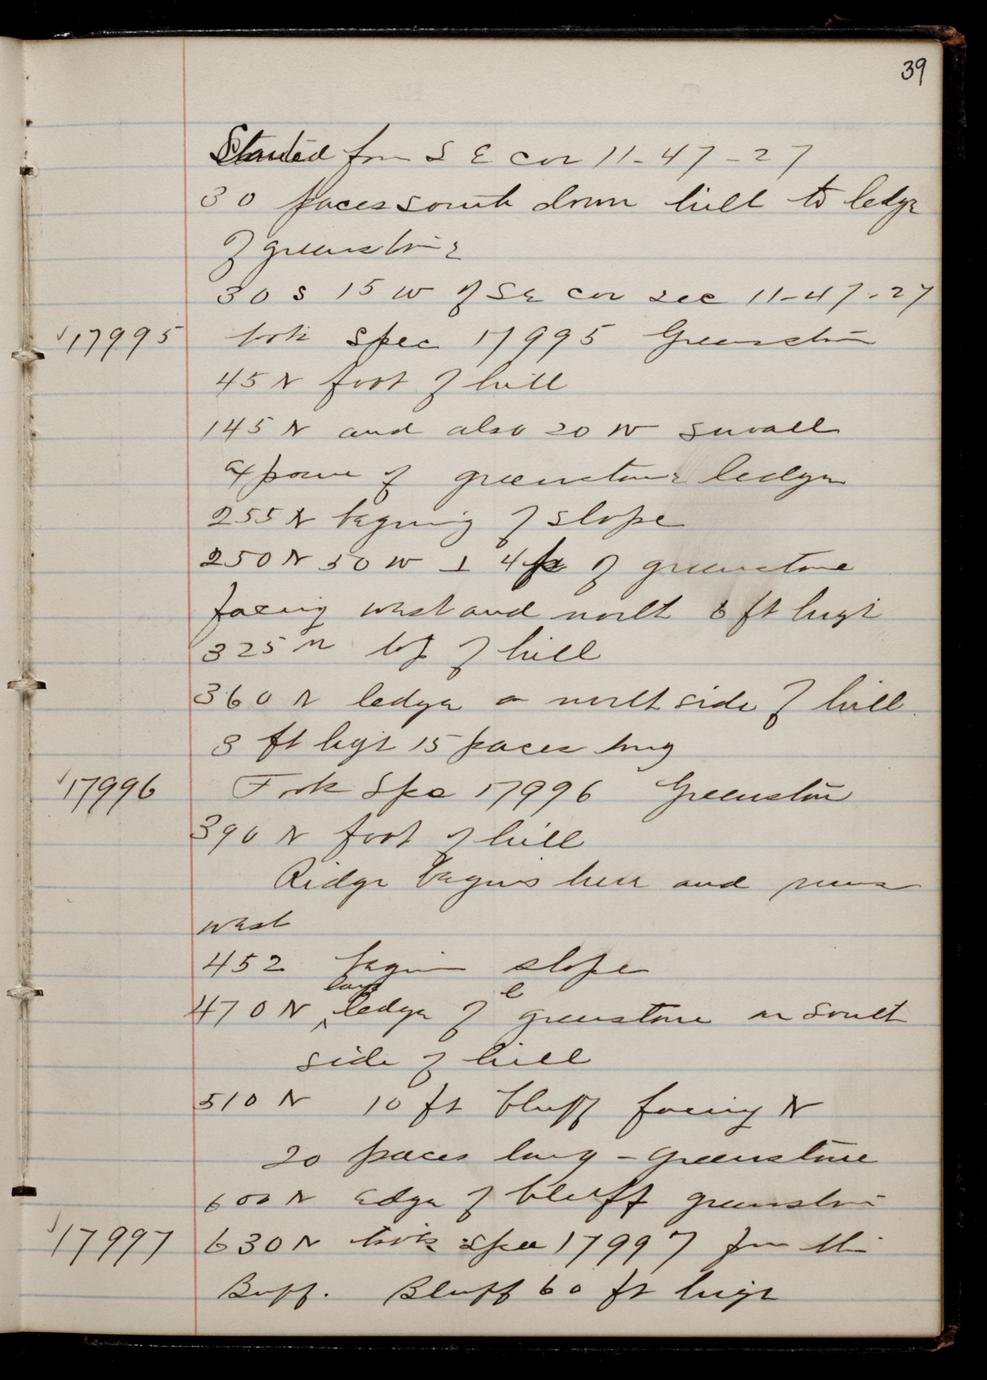 39
Started from S E cor 11-47-27
30 paces south down hill to ledge
of greenstone
30 S 15 W of SE cor sec 11-47-27
17995 took spec 17995 Greenstone
45 N foot of hill
145 N and also 20 W small
expoure of greenstone ledge
255 N begining of slope
250 N 50 W ⊥ 4 of greenstone
facing west and north 6 ft high
325 N top of hill
360 N ledge on north side of hill
3 ft high 15 paces long
17996 Took Spec 17996 Greenstone
390 N foot of hill
Ridge begins here and runs
west
452 begin slope
470 N low ledge of greenstone on south
side of hill
510 N 10 ft bluff facing N
20 paces long - greenstone
600 N edge of bluff greenstone
17997 630 N took spec 17997 from this
Buff. Bluff 60 ft high